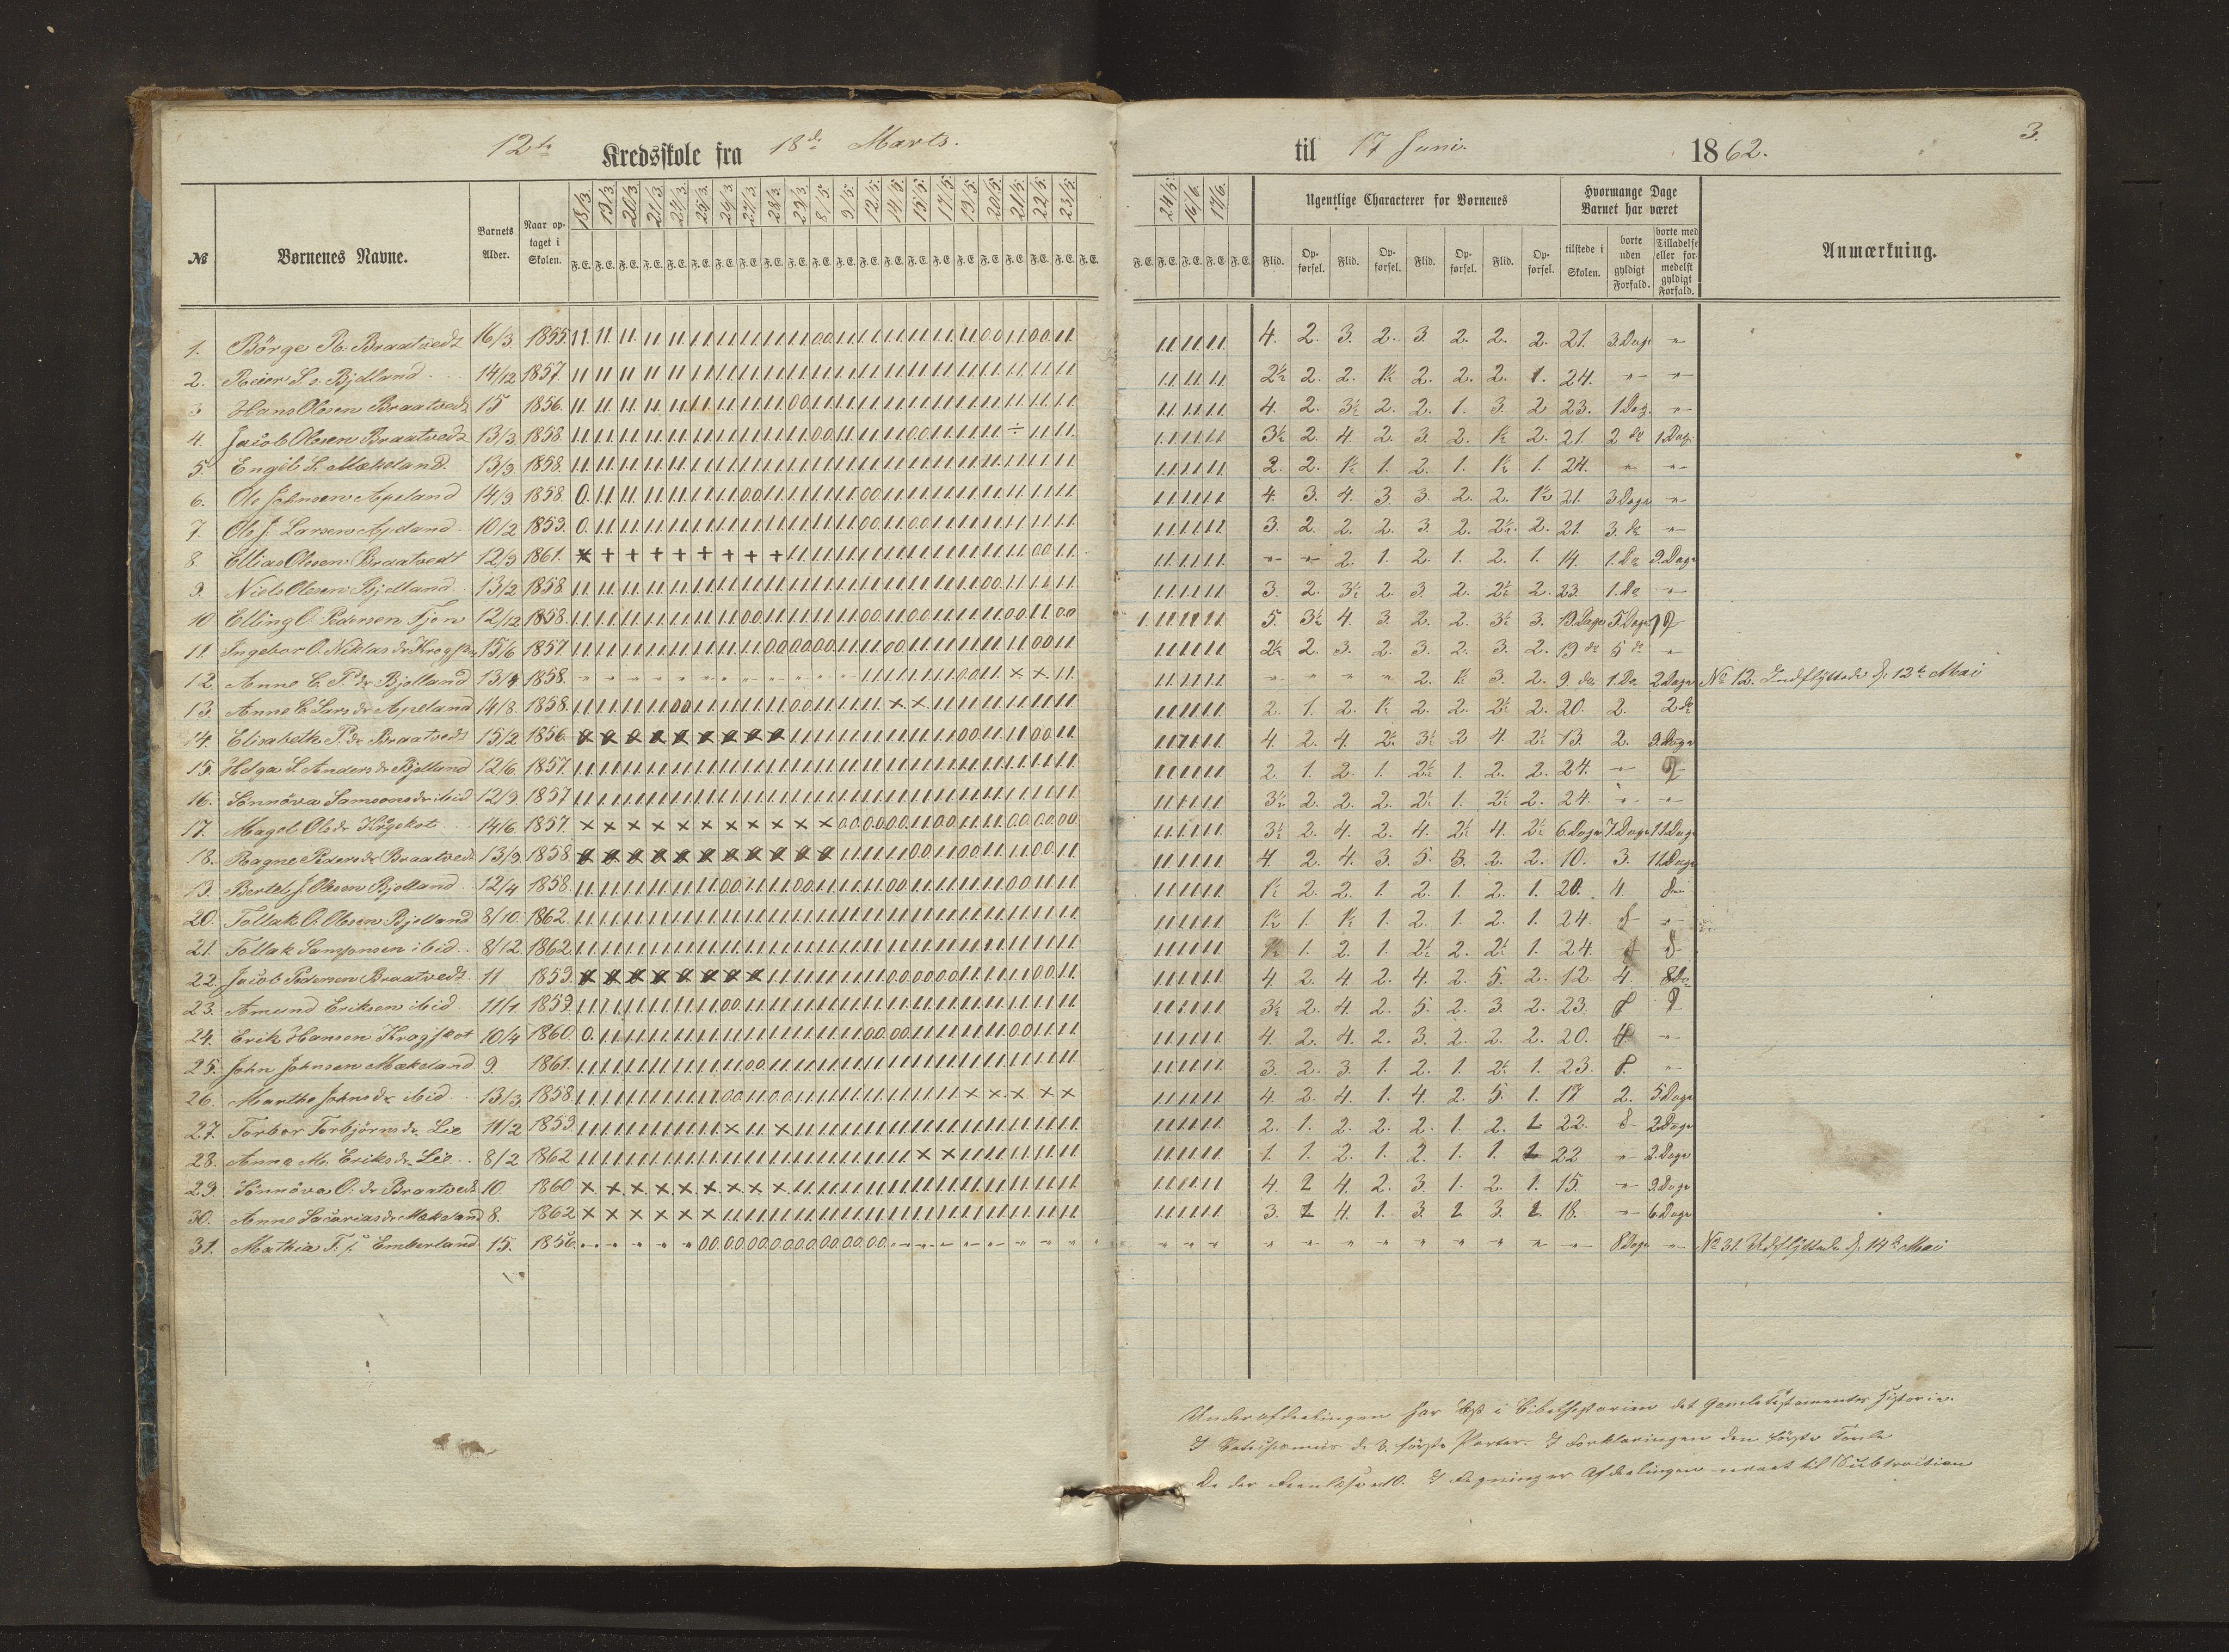 12te Kredsskole fra 18de Marts. til 17 Juni. 1862. 3.
№ Børnenes Navne. Barnets Alder. Naar optaget i Skolen. 18/3. 19/3 20/3. 21/3. 24/3. 25/3. 26/3 27/3. 28/3. 29/3. 8/5. 9/5. 12/5. 14/5. 15/5. 17/5. 19/5. 20/5. 21/5. 22/5. 23/5. 24/5. 16/6. 17/6.
Ugentlige Characterer for Børnenes Hvormange Dage Barnet har været Anmærkning.
F. E. Flid. Opførsel. Flid. Opførsel. Flid. Opførsel. Flid. Opførsel. tilstede i Skolen. borte uden gyldigt Forfald. borte med Tilladelse eller formedelst gyldigt Forfald.
1. Börge R. Braatvedt 16/3. 1855. 4. 2. 3. 2. 3. 2. 2. 2. 21. 3. Dage "
2. Reier S. s. Bjelland 14/12 1857. 2½ 2. 2. 1½ 2. 2. 2. 1. 24. " "
3 Hans Olesen Braatvedt 15 1856. 4. 2. 3½ 2. 2. 1. 3. 2 23. 1 Dag. "
4. Jacob Olesen Braatvedt 13/3 1858. 3½ 2. 4. 2. 3. 2. 1½ 2. 21. 2 do 1. Dag.
5. Engil S. Mækeland. 13/9 1858. 2. 2. 1½ 1. 2. 1. 1½ 1. 24. " "
6. Ole Johnsen Apeland 14/9 1858. 4. 3. 4. 3 3. 2. 2. 1½ 21. 3 Dage "
7. Ole J. Larsen Apeland 10/2 1859. 3. 2. 2. 2. 3. 2. 2½. 2. 21. 3. do "
8. Ellias Olesen Braatvedt 12/9 1861. " " 2. 1. 2. 1. 2. 1. 14. 1. Do 9. Dage
9. Niels Olesen Bjelland 13/2 1858. 3. 2. 3½ 2. 3. 2. 2½ 2. 23. 1. Do "
10 Elling O. Pedersen Fjon 12/12 1858. 5. 3½ 4. 3. 2. 2. 3½ 3. 19. Dage 5. Dage
11. Ingebor O. Niklasdr Krogskot 15/6 1857 2½ 2. 3. 2. 3. 2. 3. 2. 19 do 5 do "
12 Anne C. P.dr Bjelland 13/4 1858. " " " " 2. 1½ 3. 2. 9 do 1. Do 2 Dage No 12. Indflyttede d. 12te Mai
13. Anne E Larsdr Apeland 14/8. 1858. 2. 1. 2. 1½ 2. 2. 2½ 2. 20. 2. 2 do
14. Elisabeth P.dr Braatvedt 15/2 1856. 4. 2. 4. 2½ 3½ 2 4. 2½ 13. 2. 9. Dage
15. Helga S. Andersdr Bjelland 12/6. 1857. 2. 1. 2. 1. 2½ 1. 2. 2. 24. "
16. Sönnöva Samsonsdr ibid 12/9. 1857 3½ 2. 2. 2. 2½ 1. 2½ 2. 24. " "
17. Magel Olsdr Krogskot 14/6. 1857. 3½ 2. 4. 2. 4. 2½ 4. 2½ 6. Dage 7. Dage 11. Dage
18. Ragne Pedersdr Braatvedt 13/9 1858. 4. 2. 4. 3. 5. 3. 2. 2. 10. 3. 11. Dage
19. Bertel J. Olesen Bjelland 12/4 1858. 1½ 2. 2. 1. 2. 1. 2. 1. 20. 4
20. Tollak O. Olesen Bjelland 8/10. 1862. 1½ 1. 1½ 1. 2. 1. 2. 1. 24. "
21. Tollak Samsonsen ibid. 8/12. 1862. 1½ 1. 2. 1. 2½ 2. 2½ 1. 24.
22. Jacob Pedersen Braatvedt. 11 1859. 4. 2. 4. 2. 4. 2. 5. 2. 12. 4. 8 Do
23. Amund Eriksen ibid. 11/4. 1859. 3½ 2. 4. 2. 5. 2. 3. 2. 23.
24. Erik Hansen Krogskot 10/4 1860. 4. 2. 4. 2 3. 2. 2. 2. 20. 4 "
25. John Johnsen Mækeland. 9. 1861. 3. 2. 3. 1. 2. 1. 2½ 1. 23. "
26. Marthe Johnsdr ibid 13/3. 1858. 4. 2. 4. 1. 4. 2. 5. 1. 17 2. 5 Dage
27. Torbor Torbjörnsdr Lie 11/2 1859 2. 1. 2. 2. 2. 1. 2. 1 22. 2 Dage
28. Anne M. Eriksdr Lie 8/2 1862 1. 1. 2. 1. 2. 1. 1. 1 22 " 2. Dage
29. Sönnöva O. dr Braatvedt 10. 1860 4. 2 4. 2. 3. 1. 2. 1. 15. " 9. Dage
30. Anne Sacariasdr Mækeland 8. 1862 3. 4. 1. 3. 3. 18. " 6 Dage
31. Mathia T. Emberland 15. 1856. " " " " " " " " " 8 Dage " No 31. Udflyttede d. 14de Mai
Underafdelingen har læst i Bibelhistorien det Gamle Testamentes Historie.
I Catechismus de 3. første Parter. I Forklaringen den første Tavle
I Regning er Afdelingen naaet til Subtraktion